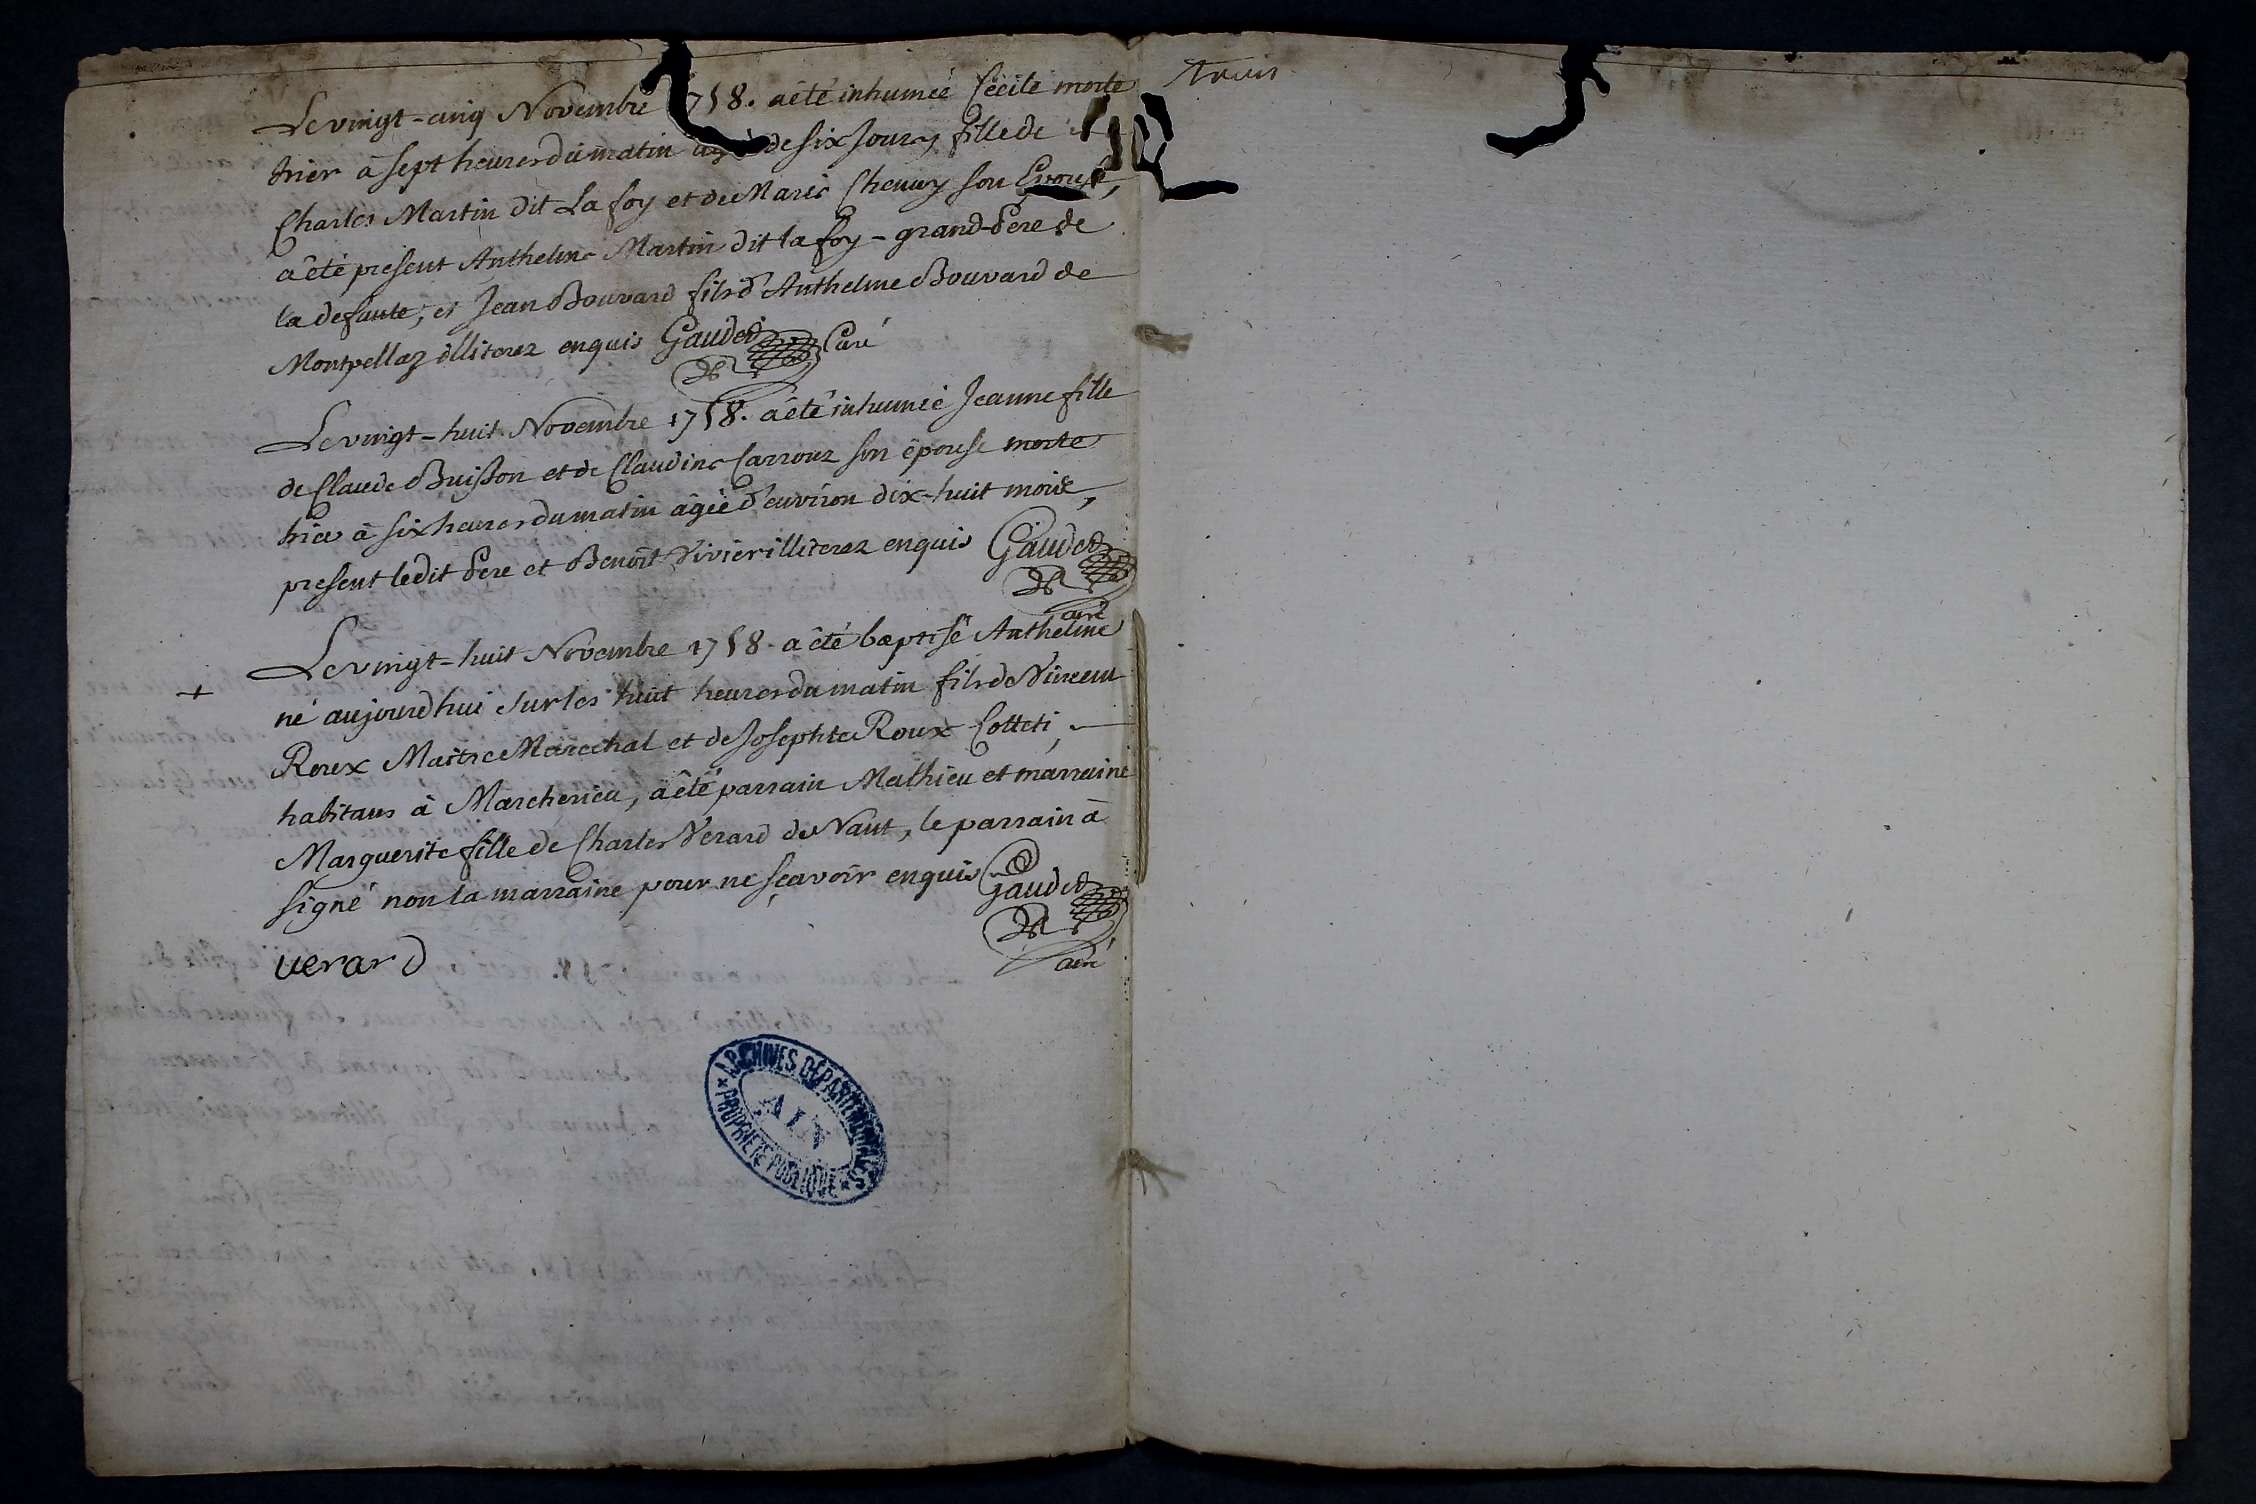 Le vingt-cinq Novembre 1758. a êté inhumée Cécile morte
hier à sept heures du matin agée de six jours fille de
Charles Martin dit Lafoy et de Marie Chenuy son Epouse,
a êté present Anthelme Martin dit lafoy - grand-Pere de
la defunte, et Jean Bouvard fils d'Anthelme Bouvard de
Montpellaz illiterez enquis Gaudet Curé
Le vingt-huit Novembre 1758. a êté inhumée Jeanne fille
de Claude Buisson et de Claudine Carroux son êpouse morte
hier à six heures du matin agée d'environ dix-huit mois,
present ledit Pere et Benoît Vivier illiterez enquis Gaudet
curé
+ Le vingt-huit Novembre 1758. a êté baptisé Anthelme
né aujourdhui sur les huit heures du matin fils de Vincent
Roux Maitre Marechal et de Josephte Roux Colleti,
habitans à Marcherieu, a êté parrain Mathieu et marraine
Marguerite fille de Charles Verard de Vaut, le parrain a
signé non la marraine pour ne sçavoir enquis Gaudet
Verard
curé
trois
ARCHIVES DÉPARTEMENTALES
AIN
* PROPRIÉTÉ PUBLIQUE *